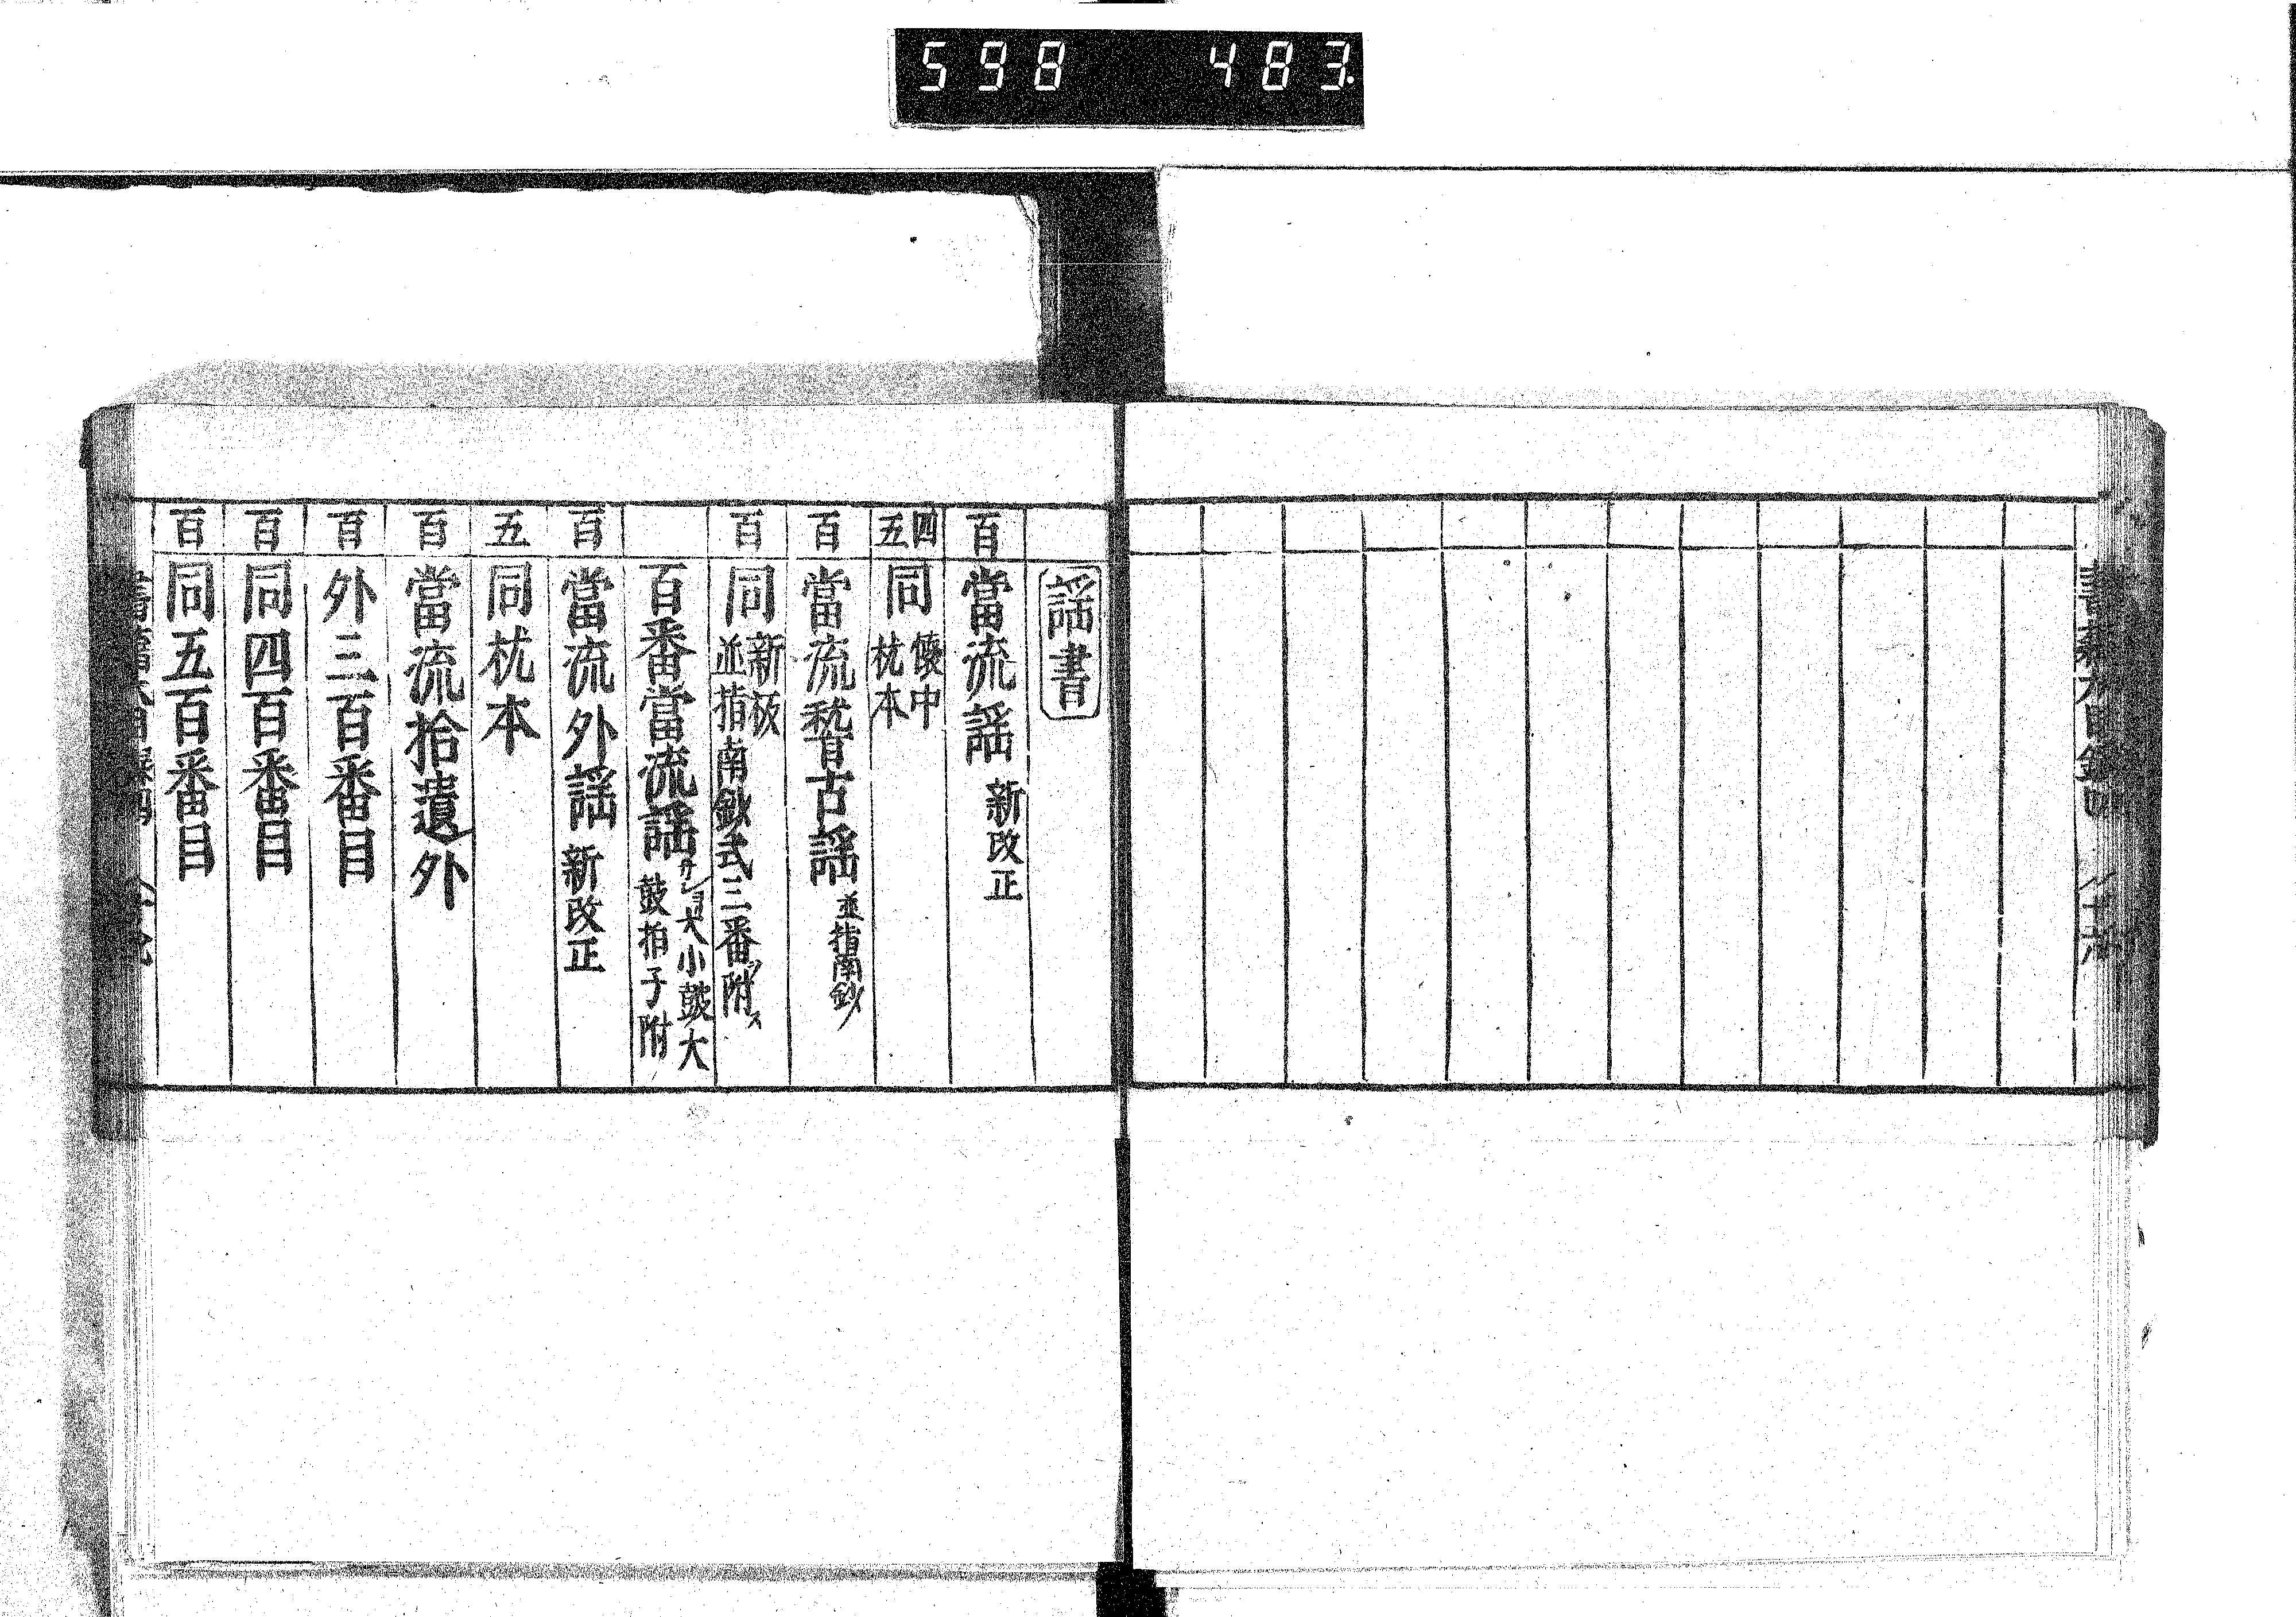 598 483.
謡書
百 當流謡 新改正
四五 同 懐中 枕本
百 當流稽古謡 並指南鈔
百 同 新板 並指南鈔式三番附
百番當流謡 大小鼓大鼓拍子附
百 當流外謡 新改正
五 同枕本
百 當流拾遺外
百 外三百番目
百 同四百番目
百 同五百番目